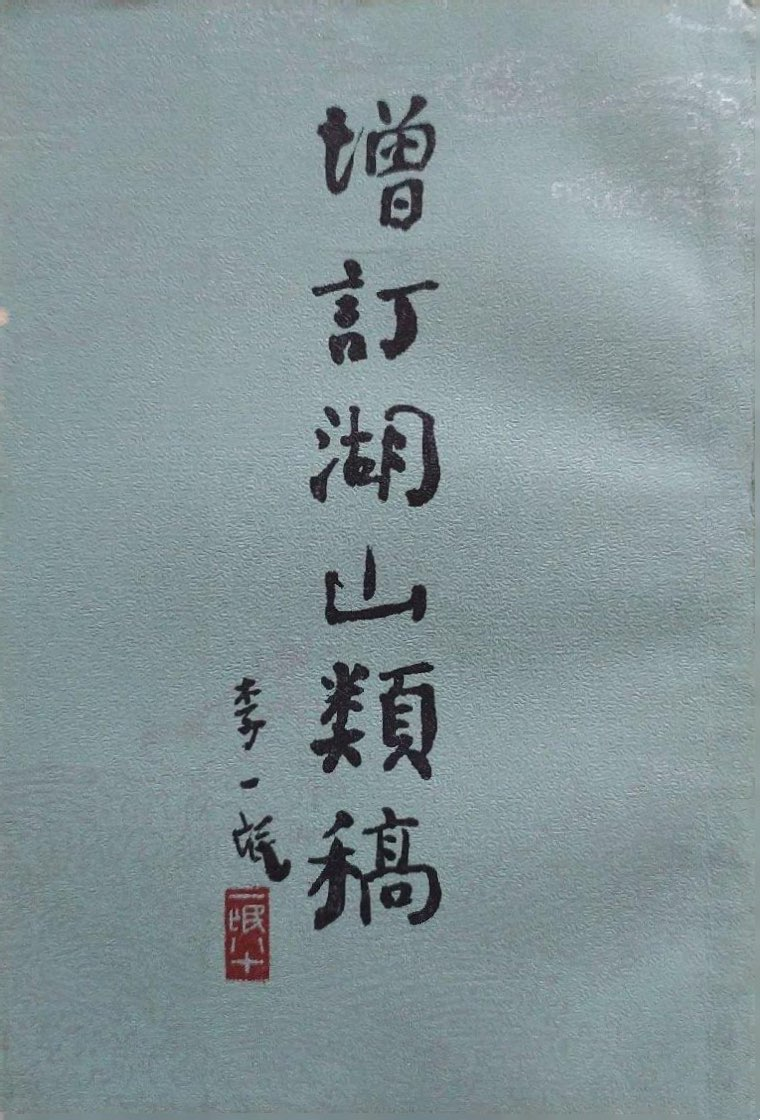 增訂湖山類稿
李一氓
一氓八十